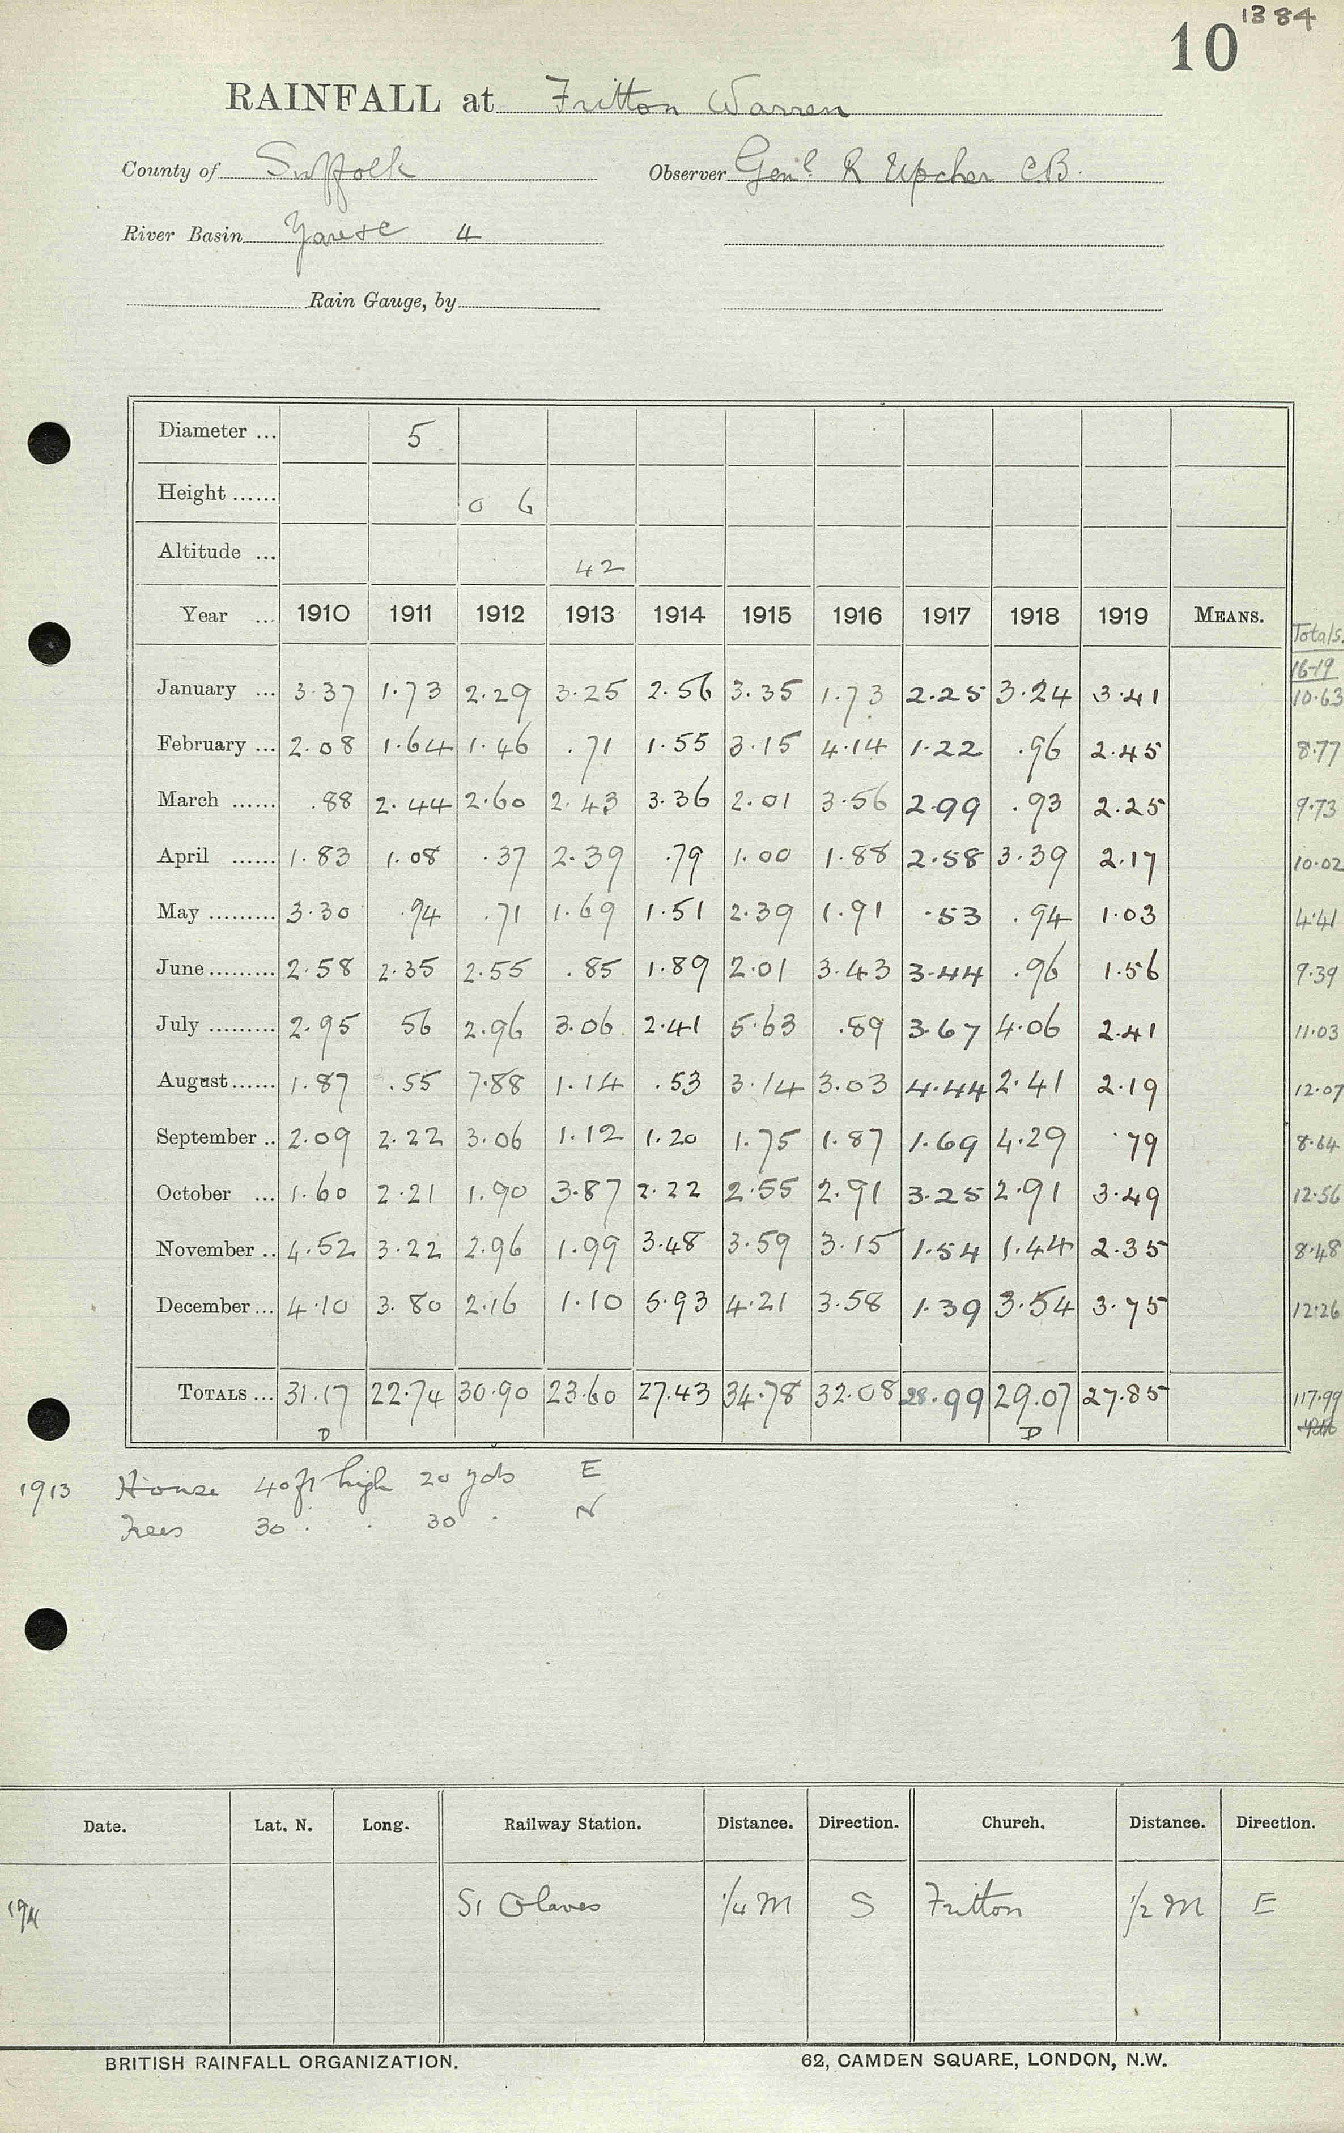 1384
10
RAINFALL at Fritton Warren
County of Suffolk Observer Genl. R Upcher CB.
River Basin Yare &c 4
Rain Gauge, by
Diameter ... 5
Height ...... 0 6
Altitude ... 42
Year ... 1910 1911 1912 1913 1914 1915 1916 1917 1918 1919 MEANS. Totals.
16-19
January ... 3.37 1.73 2.29 3.25 2.56 3.35 1.73 2.25 3.24 3.41 10.63
February ... 2.08 1.64 1.46 .71 1.55 3.15 4.14 1.22 .96 2.45 8.77
March ...... .88 2.44 2.60 2.43 3.36 2.01 3.56 2.99 .93 2.25 9.73
April ...... 1.83 1.08 .37 2.39 .79 1.00 1.88 2.58 3.39 2.17 10.02
May ......... 3.30 .94 .71 1.69 1.51 2.39 1.91 .53 .94 1.03 4.41
June ......... 2.58 2.35 2.55 .85 1.89 2.01 3.43 3.44 .96 1.56 9.39
July ......... 2.95 56 2.96 3.06 2.41 5.63 .89 3.67 4.06 2.41 11.03
August ...... 1.87 .55 7.88 1.14 .53 3.14 3.03 4.44 2.41 2.19 12.07
September .. 2.09 2.22 3.06 1.12 1.20 1.75 1.87 1.69 4.29 .79 8.64
October ... 1.60 2.21 1.90 3.87 2.22 2.55 2.91 3.25 2.91 3.49 12.56
November .. 4.52 3.22 2.96 1.99 3.48 3.59 3.15 1.54 1.44 2.35 8.48
December ... 4.10 3.80 2.16 1.10 5.93 4.21 3.58 1.39 3.54 3.75 12.26
TOTALS ... 31.17 22.74 30.90 23.60 27.43 34.78 32.08 28.99 29.07 27.85 117.99
D D
1913 House 40ft high 20 yds E
Trees 30 . . 30 . N
Date. Lat. N. Long. Railway Station. Distance. Direction. Church. Distance. Direction.
1911 St Olaves 1/4 M S Fritton 1/2 M E
BRITISH RAINFALL ORGANIZATION. 62, CAMDEN SQUARE, LONDON, N.W.